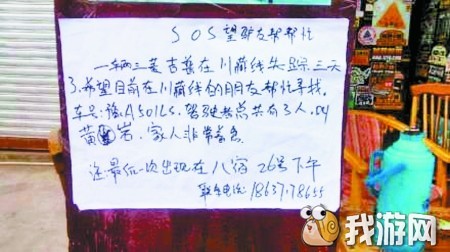 SOS望驴友帮帮忙
一辆三菱吉普在川藏线失踪三天
了,希望目前在川藏线的朋友帮忙寻找。
车号:豫A501LS,驾驶共有3人,叫
黄岩,家人非常着急
最后一次出现在八宿26号下午
联系电话:18637178655
我游网